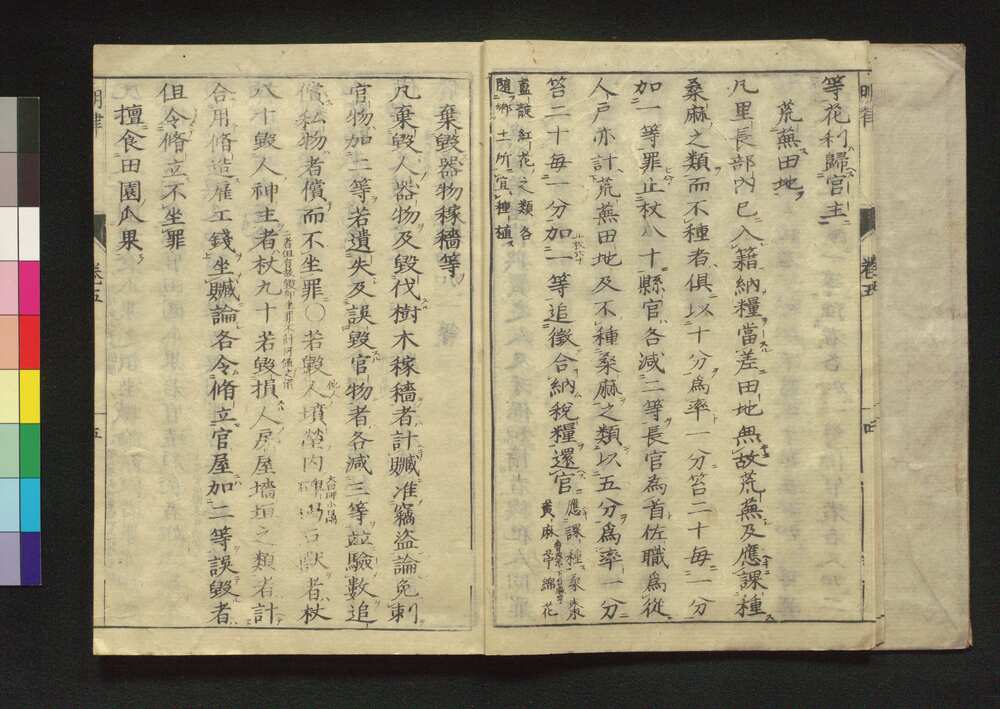 等花利歸官主
荒蕪田地
凡里長部內已入籍納糧當差田地無故荒蕪及應課種
桑麻之類而不種者俱以十分爲率一分笞二十每一分
加一等罪止杖八十縣官各減二等長官爲首佐職爲從
人戶亦計荒蕪田地及不種桑麻之類以五分爲率一分
笞二十每一分加一等追徵合納稅糧還官應課種桑棗
黃麻苧綿花
藍靛紅花之類各
隨鄉土所宜種植
棄毀器物稼穡等
凡棄毀人器物及毀伐樹木稼穡者計贓准竊盜論免刺
官物加二等若遺失及誤毀官物者各減三等並驗數追
償私物者償而不坐罪○若毀人墳塋內碑碣石獸者杖
八十毀人神主者杖九十若毀損人房屋墻垣之類者計
合用脩造雇工錢坐贓論各令脩立官屋加二等誤毀者
但令脩立不坐罪
擅食田園瓜果
明律
卷五
五